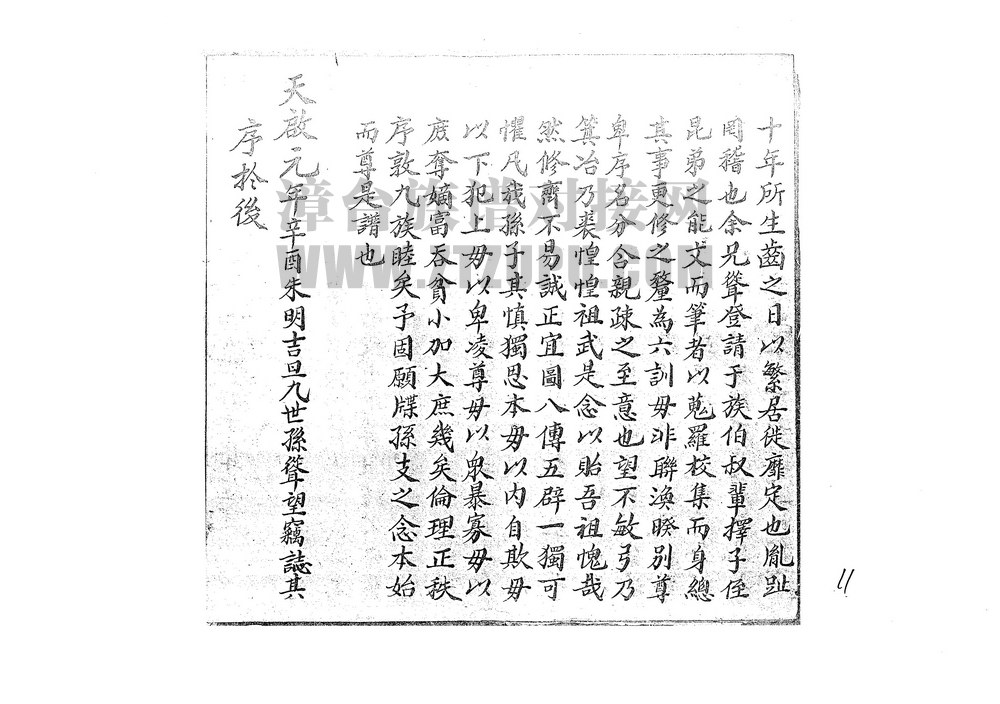 十年所生齒之日以繁居徙靡定也胤趾
罔稽也余兄聳登請于族伯叔輩擇子侄
昆弟之能文而筆者以蒐羅校集而身總
其事更修之釐為六訓毋非聯渙睽別尊
卑序名分合親疎之至意也望不敏弓乃
箕冶乃裘惶惶祖武是念以貽吾祖愧哉
然修齊不易誠正宜圖八傳五辟一獨可
懼凡我孫子其慎獨思本毋以內自欺毋
以下犯上毋以卑凌尊毋以眾暴寡毋以
庶奪嫡富吞貧小加大庶幾矣倫理正秩
序敦九族睦矣予固願牒孫支之念本始
而尊是譜也
天啟元年辛酉朱明吉旦九世孫聳望竊誌其
序於後
漳台族谱对接网
11